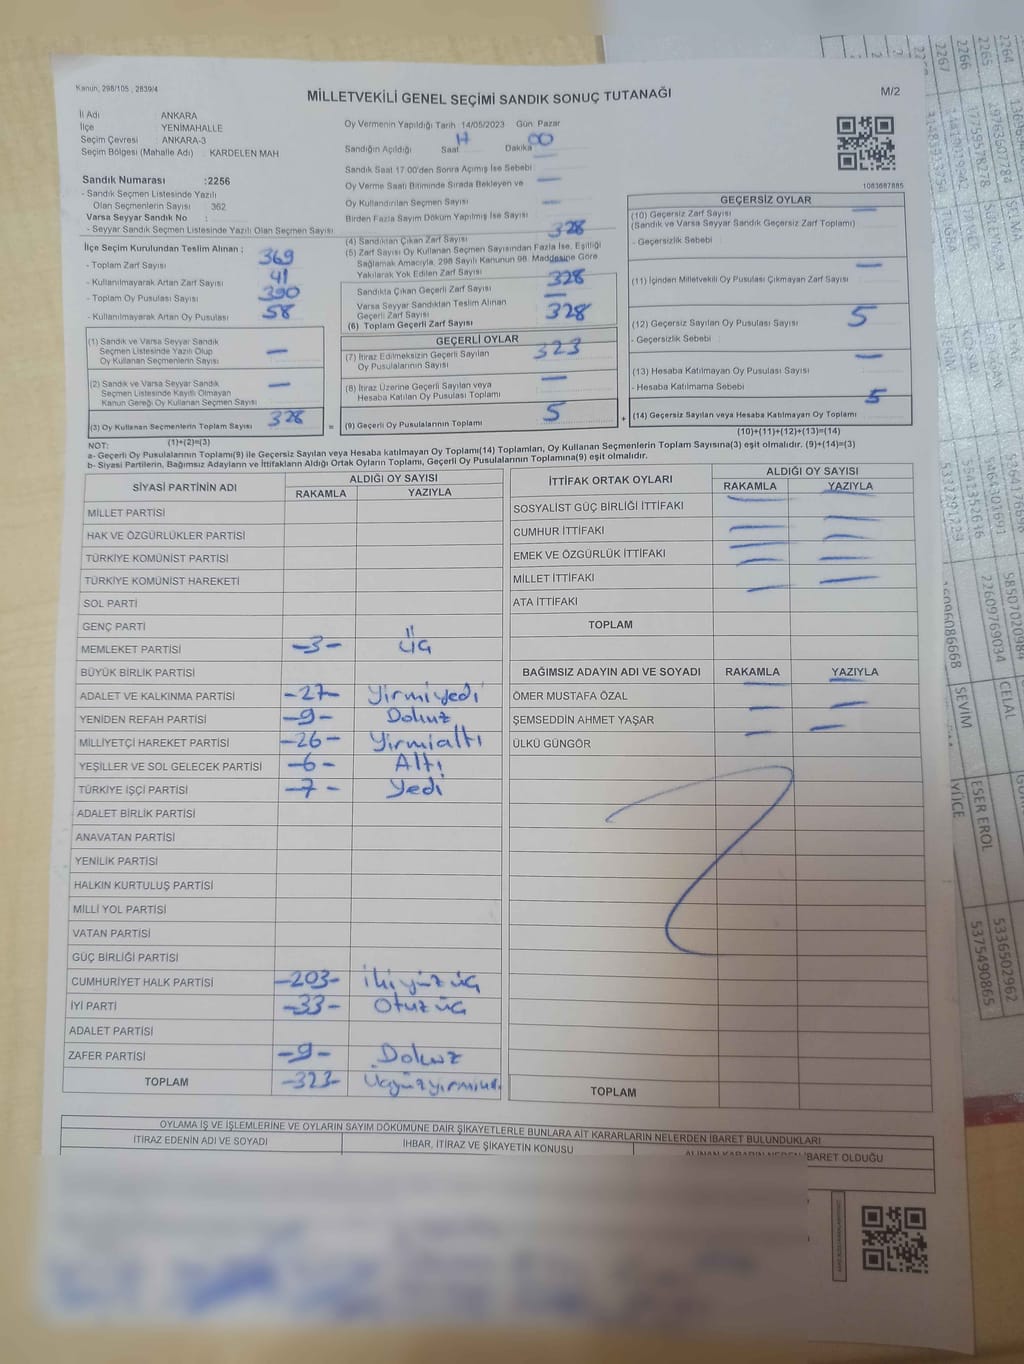 Kanun, 298/105 , 2839/4
MİLLETVEKİLİ GENEL SEÇİMİ SANDIK SONUÇ TUTANAĞI
M/2
İl Adı : ANKARA
İlçe : YENİMAHALLE
Seçim Çevresi : ANKARA-3
Seçim Bölgesi (Mahalle Adı) : KARDELEN MAH
Oy Vermenin Yapıldığı Tarih 14/05/2023 Gün Pazar
Sandığın Açıldığı Saat 17 Dakika 00
Sandık Saat 17.00'den Sonra Açımış İse Sebebi
Oy Verme Saati Bitiminde Sırada Bekleyen ve
Oy Kullandırılan Seçmen Sayısı
Birden Fazla Sayım Döküm Yapılmış İse Sayısı
1083687885
Sandık Numarası :2256
- Sandık Seçmen Listesinde Yazılı
Olan Seçmenlerin Sayısı : 362
Varsa Seyyar Sandık No :
- Seyyar Sandık Seçmen Listesinde Yazılı Olan Seçmen Sayısı
İlçe Seçim Kurulundan Teslim Alınan ;
- Toplam Zarf Sayısı 369
- Kullanılmayarak Artan Zarf Sayısı 41
- Toplam Oy Pusulası Sayısı 390
- Kullanılmayarak Artan Oy Pusulası 58
(1) Sandık ve Varsa Seyyar Sandık
Seçmen Listesinde Yazılı Olup
Oy Kullanan Seçmenlerin Sayısı —
(2) Sandık ve Varsa Seyyar Sandık
Seçmen Listesinde Kayıtlı Olmayan
Kanun Gereği Oy Kullanan Seçmen Sayısı —
(3) Oy Kullanan Seçmenlerin Toplam Sayısı 328
(1)+(2)=(3)
(4) Sandıktan Çıkan Zarf Sayısı 328
(5) Zarf Sayısı Oy Kullanan Seçmen Sayısından Fazla İse, Eşitliği
Sağlamak Amacıyla, 298 Sayılı Kanunun 98. Maddesine Göre
Yakılarak Yok Edilen Zarf Sayısı
Sandıkta Çıkan Geçerli Zarf Sayısı 328
Varsa Seyyar Sandıktan Teslim Alınan
Geçerli Zarf Sayısı —
(6) Toplam Geçerli Zarf Sayısı 328
GEÇERLİ OYLAR
(7) İtiraz Edilmeksizin Geçerli Sayılan
Oy Pusulalarının Sayısı 323
(8) İtiraz Üzerine Geçerli Sayılan veya
Hesaba Katılan Oy Pusulası Toplamı —
(9) Geçerli Oy Pusulalarının Toplamı 5
GEÇERSİZ OYLAR
(10) Geçersiz Zarf Sayısı —
(Sandık ve Varsa Seyyar Sandık Geçersiz Zarf Toplamı)
- Geçersizlik Sebebi :
(11) İçinden Milletvekili Oy Pusulası Çıkmayan Zarf Sayısı —
(12) Geçersiz Sayılan Oy Pusulası Sayısı 5
- Geçersizlik Sebebi :
(13) Hesaba Katılmayan Oy Pusulası Sayısı —
- Hesaba Katılmama Sebebi :
(14) Geçersiz Sayılan veya Hesaba Katılmayan Oy Toplamı 5
(10)+(11)+(12)+(13)=(14)
NOT:
a- Geçerli Oy Pusulalarının Toplamı(9) ile Geçersiz Sayılan veya Hesaba katılmayan Oy Toplamı(14) Toplamları, Oy Kullanan Seçmenlerin Toplam Sayısına(3) eşit olmalıdır. (9)+(14)=(3)
b- Siyasi Partilerin, Bağımsız Adayların ve İttifakların Aldığı Ortak Oyların Toplamı, Geçerli Oy Pusulalarının Toplamına(9) eşit olmalıdır.
SİYASİ PARTİNİN ADI
ALDIĞI OY SAYISI
RAKAMLA YAZIYLA
MİLLET PARTİSİ
HAK VE ÖZGÜRLÜKLER PARTİSİ
TÜRKİYE KOMÜNİST PARTİSİ
TÜRKİYE KOMÜNİST HAREKETİ
SOL PARTİ
GENÇ PARTİ
MEMLEKET PARTİSİ -3- Üç
BÜYÜK BİRLİK PARTİSİ
ADALET VE KALKINMA PARTİSİ -27- Yirmiyedi
YENİDEN REFAH PARTİSİ -9- Dokuz
MİLLİYETÇİ HAREKET PARTİSİ -26- Yirmialtı
YEŞİLLER VE SOL GELECEK PARTİSİ -6- Altı
TÜRKİYE İŞÇİ PARTİSİ -7- Yedi
ADALET BİRLİK PARTİSİ
ANAVATAN PARTİSİ
YENİLİK PARTİSİ
HALKIN KURTULUŞ PARTİSİ
MİLLİ YOL PARTİSİ
VATAN PARTİSİ
GÜÇ BİRLİĞİ PARTİSİ
CUMHURİYET HALK PARTİSİ -203- İkiyüz üç
İYİ PARTİ -33- Otuz üç
ADALET PARTİSİ
ZAFER PARTİSİ -9- Dokuz
TOPLAM -323-
İTTİFAK ORTAK OYLARI
ALDIĞI OY SAYISI
RAKAMLA YAZIYLA
SOSYALİST GÜÇ BİRLİĞİ İTTİFAKI — —
CUMHUR İTTİFAKI — —
EMEK VE ÖZGÜRLÜK İTTİFAKI — —
MİLLET İTTİFAKI — —
ATA İTTİFAKI
TOPLAM
BAĞIMSIZ ADAYIN ADI VE SOYADI RAKAMLA YAZIYLA
ÖMER MUSTAFA ÖZAL — —
ŞEMSEDDİN AHMET YAŞAR — —
ÜLKÜ GÜNGÖR
TOPLAM
OYLAMA İŞ VE İŞLEMLERİNE VE OYLARIN SAYIM DÖKÜMÜNE DAİR ŞİKAYETLERLE BUNLARA AİT KARARLARIN NELERDEN İBARET BULUNDUKLARI
İTİRAZ EDENİN ADI VE SOYADI
İHBAR, İTİRAZ VE ŞİKAYETİN KONUSU
İBARET OLDUĞU
2267
2266
2265
2264
SEVİM
CELAL
YÜCE
ESER EROL
22609769034
5375490865
5336502962